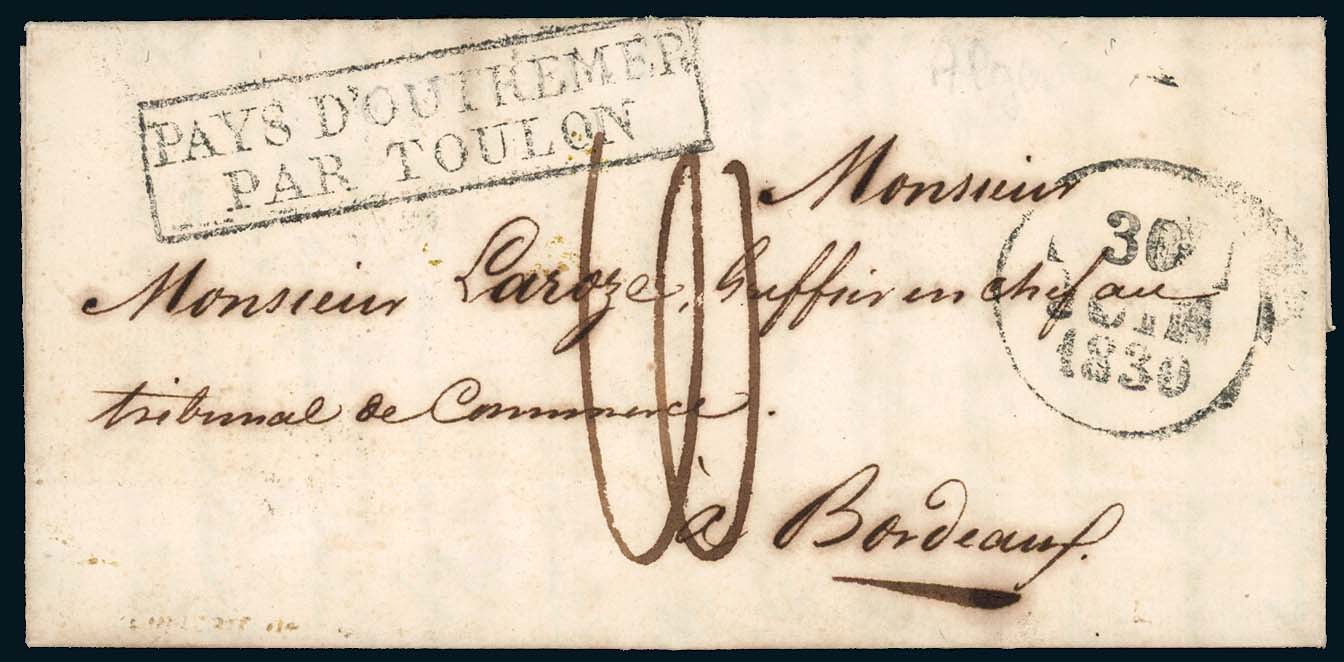 PAYS D'OUTREMER
PAR TOULON
Monsieur
Monsieur Laroze, Greffier en chef au
tribunal de Commerce.
à Bordeaux.
30
1830